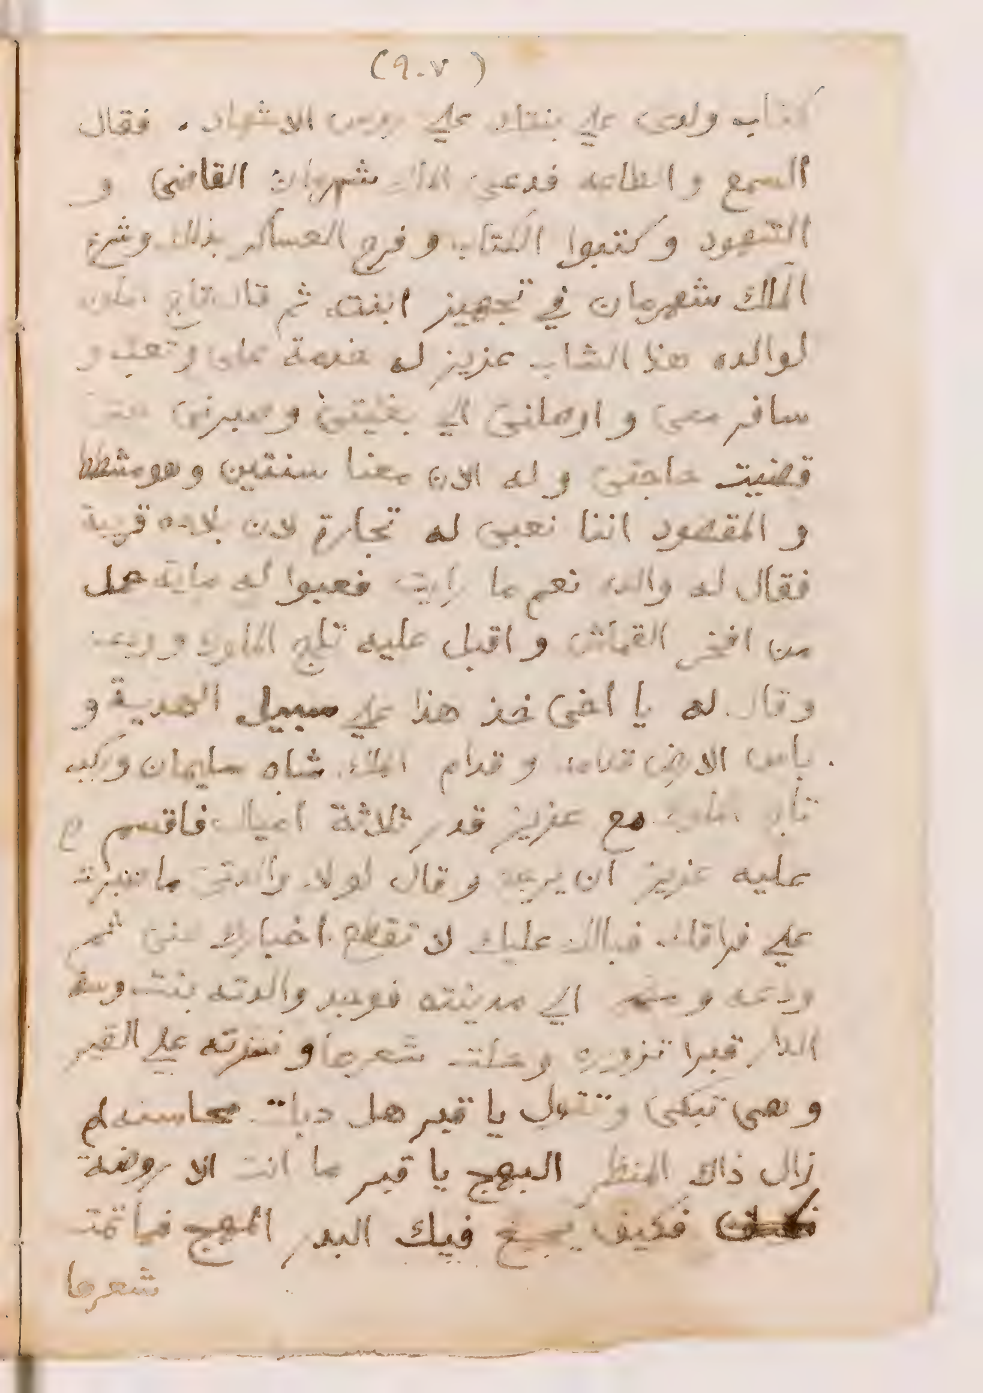 (٩٠٧)
كتاب ولدى علي بنتك علي روس الاشهاد . فقال
السمع و الطاعه فدعى الملك شهرمان القاضي و
الشهود و كتبوا الكتاب و فرح العساكر بذلك وشرع
الملك شهرمان في تجهيز ابنته ثم قال تاج الملوك
لوالده هذا الشاب عزيز له خدمة على و تعب و
سافر معى و اوصلنى الي بغيتى وصبرنى حتى
قضيت حاجتى و له الان معنا سنتين وهو مشطط
و المقصود اننا نعبى له تجارة لان بلاده قريبة
فقال له والده نعم ما رايت فعبوا له ماية حمل
من افخر القماش و اقبل عليه تاج الملوك وودعه
وقال له يا اخى خذ هذا علي سبيل الهدية و
باس الارض قدامه و قدام الملك شاه سليمان وركب
تاج الملوك مع عزيز قدر ثلاثة اميال فاقسم
عليه عزيز ان يرجع و قال لولا والدتى ما صبرت
علي فراقك فبالله عليك لا تقطع اخبارك عنى ثم
ودعه و الي مدينته فوجد والدته بنت وسط
الدار قبرا تزوره وحلت شعرها و نشرته علي القبر
و هى تبكى و تقول يا قبر هل محاسنه ام
زال ذاك المنظر البهج يا قبر ما انت الا روضة
فكيف يجمع فيك البدر المهج فما تمت
شعرها